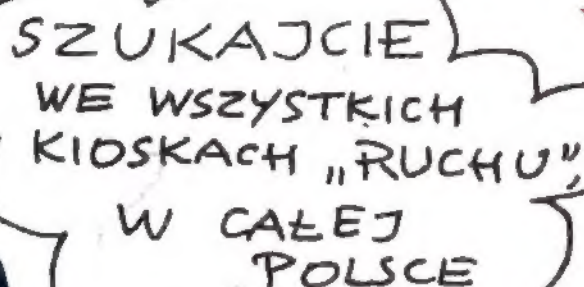 SZUKAJCIE
WE WSZYSTKICH
KIOSKACH „RUCHU",
W CAŁEJ
POLSCE